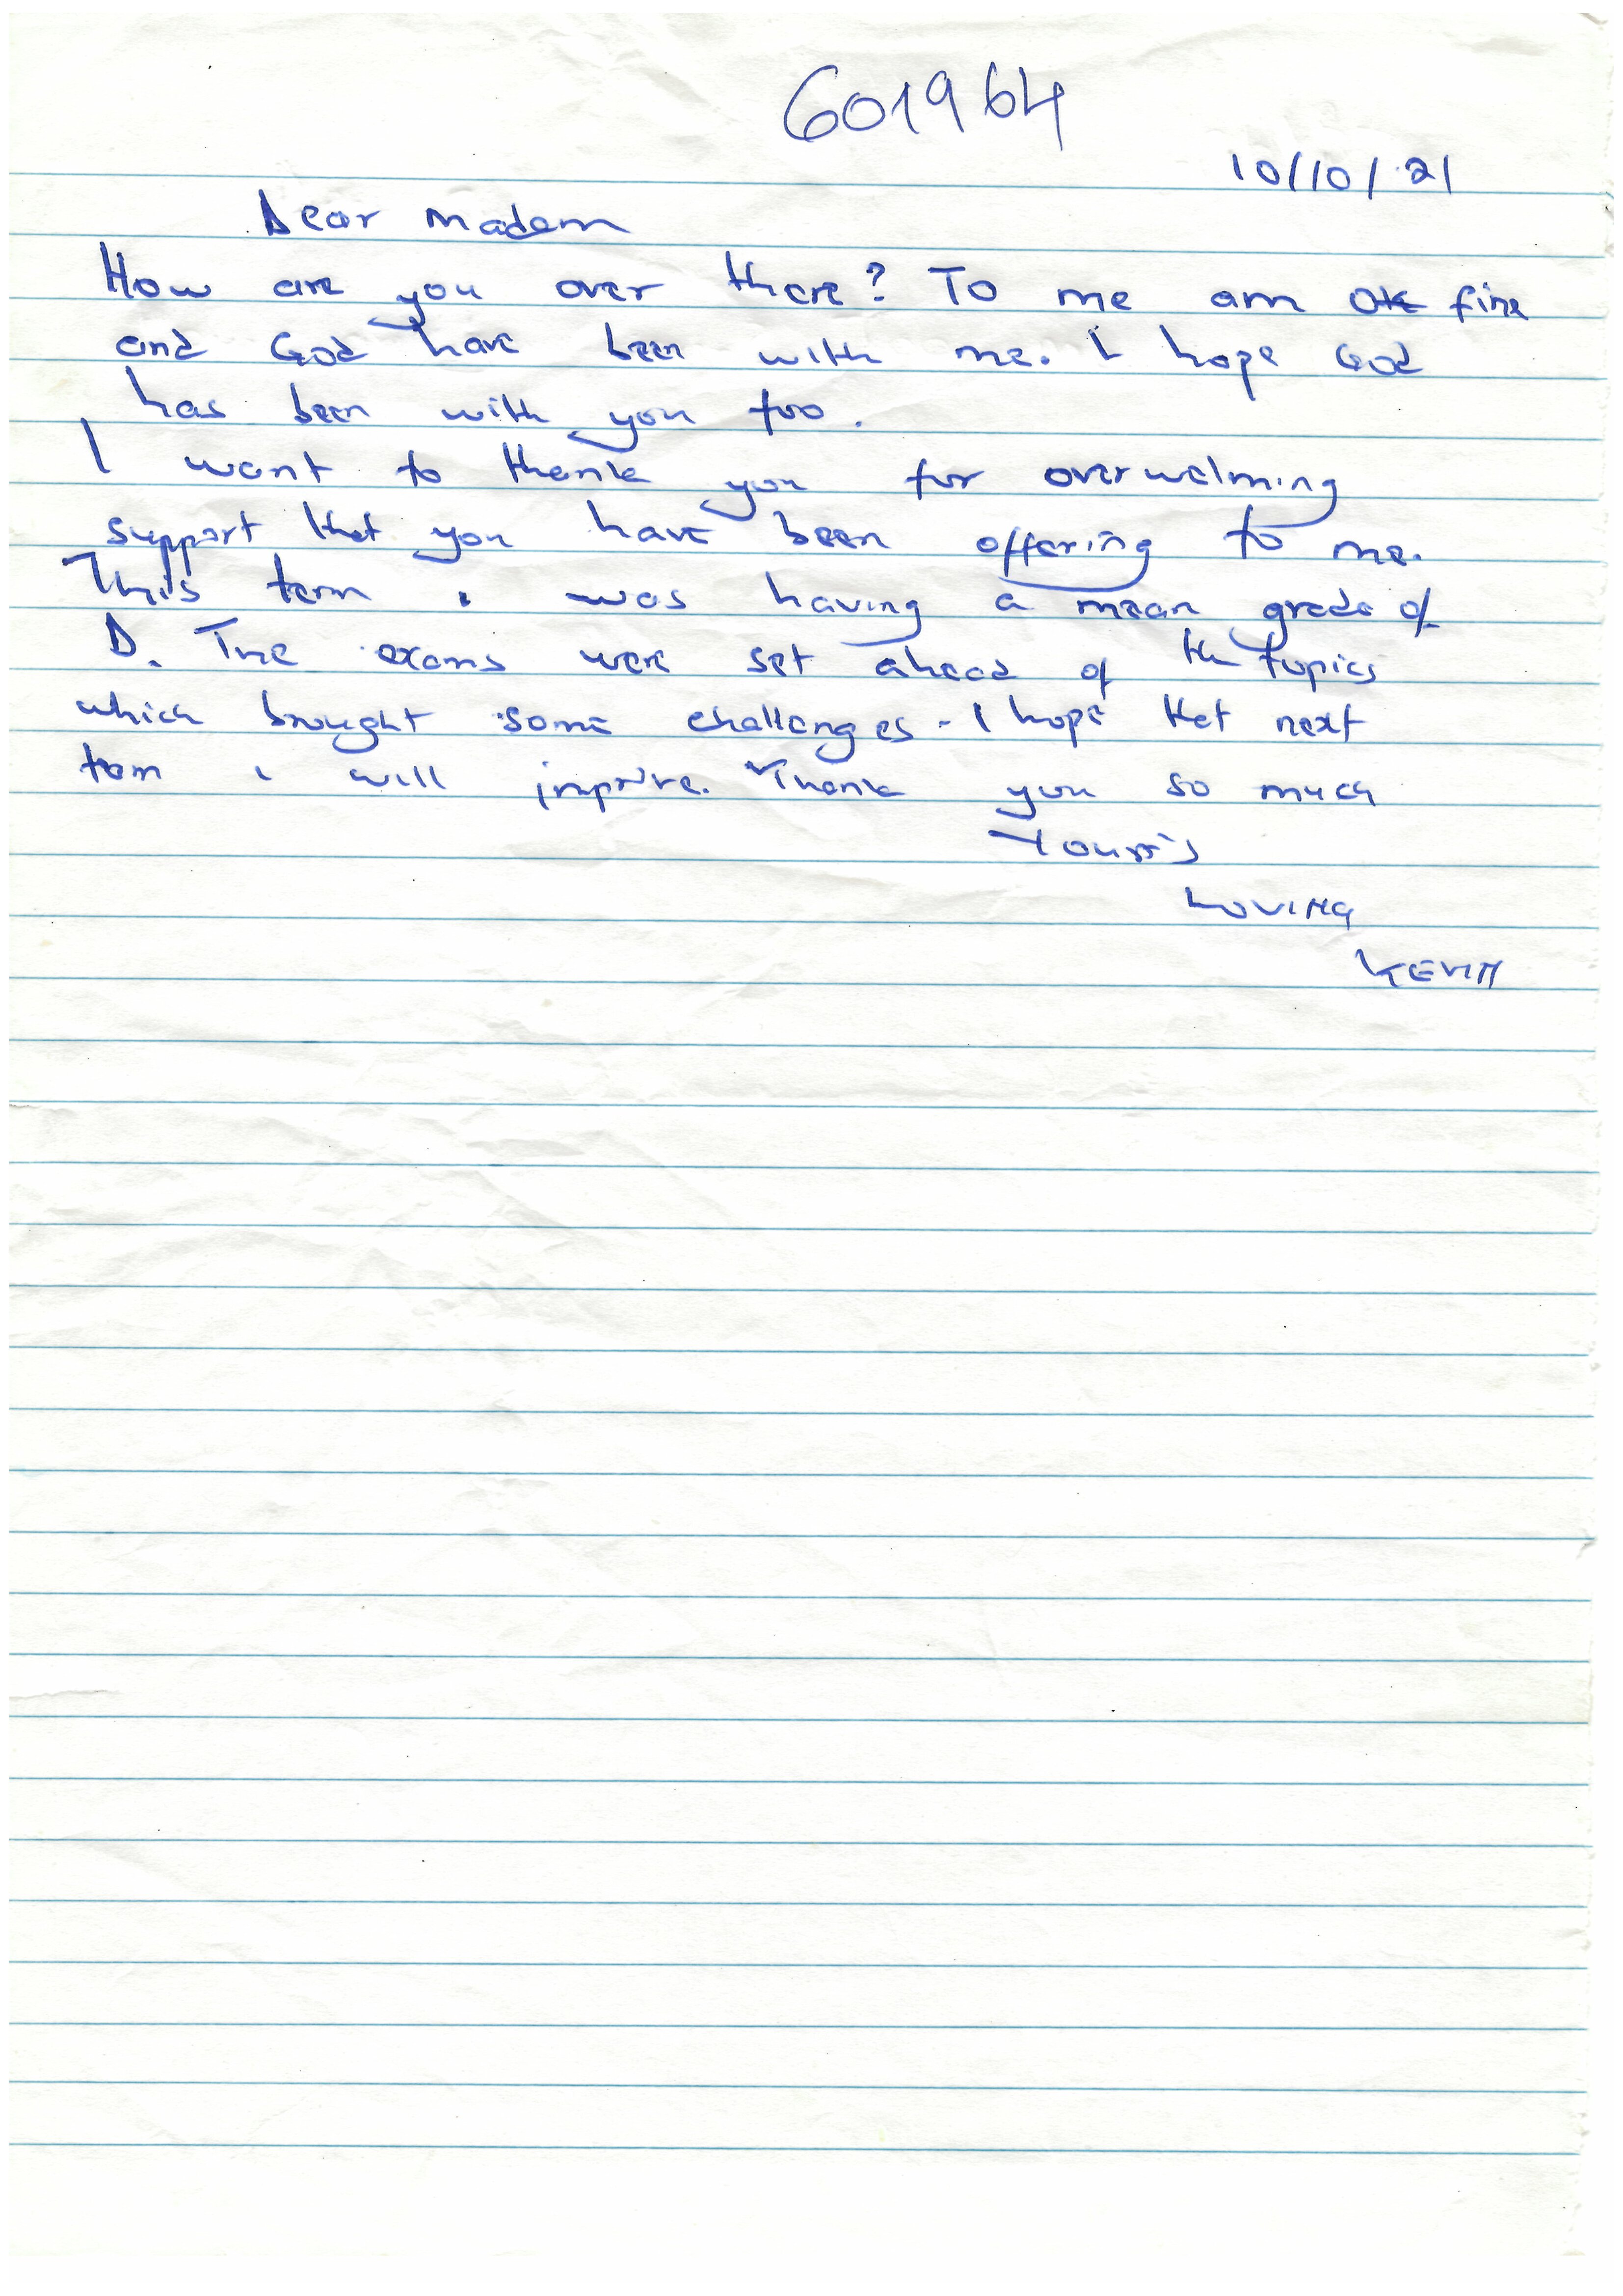 601964
10/10/21
Dear madam
How are you over there? To me am ok fine
and God have been with me. I hope God
has been with you too.
I want to thank you for overwelming
support that you have been offering to me.
This term i was having a mean grade of
D. The exams were set ahead of the topics
which brought some challenges. I hope that next
term i will improve. Thank you so much
Yours's
Loving
KEVIN